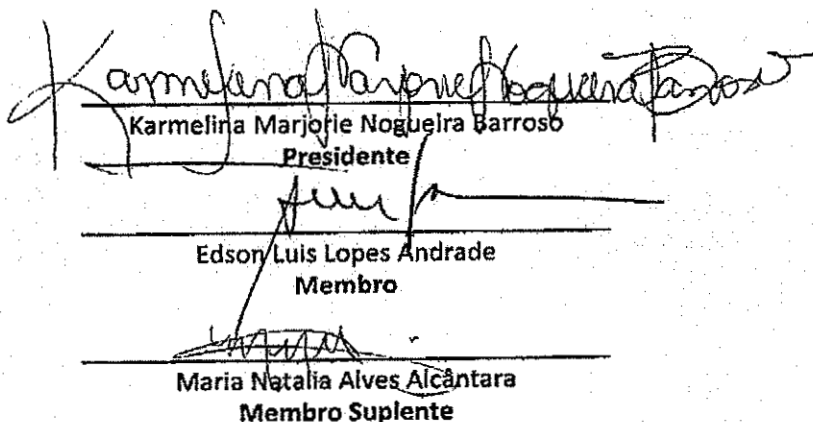 Karmelina Marjorie Nogueira Barroso
Karmelina Marjorie Nogueira Barroso
Presidente
Edson Luis Lopes Andrade
Membro
Maria Natalia Alves Alcântara
Membro Suplente